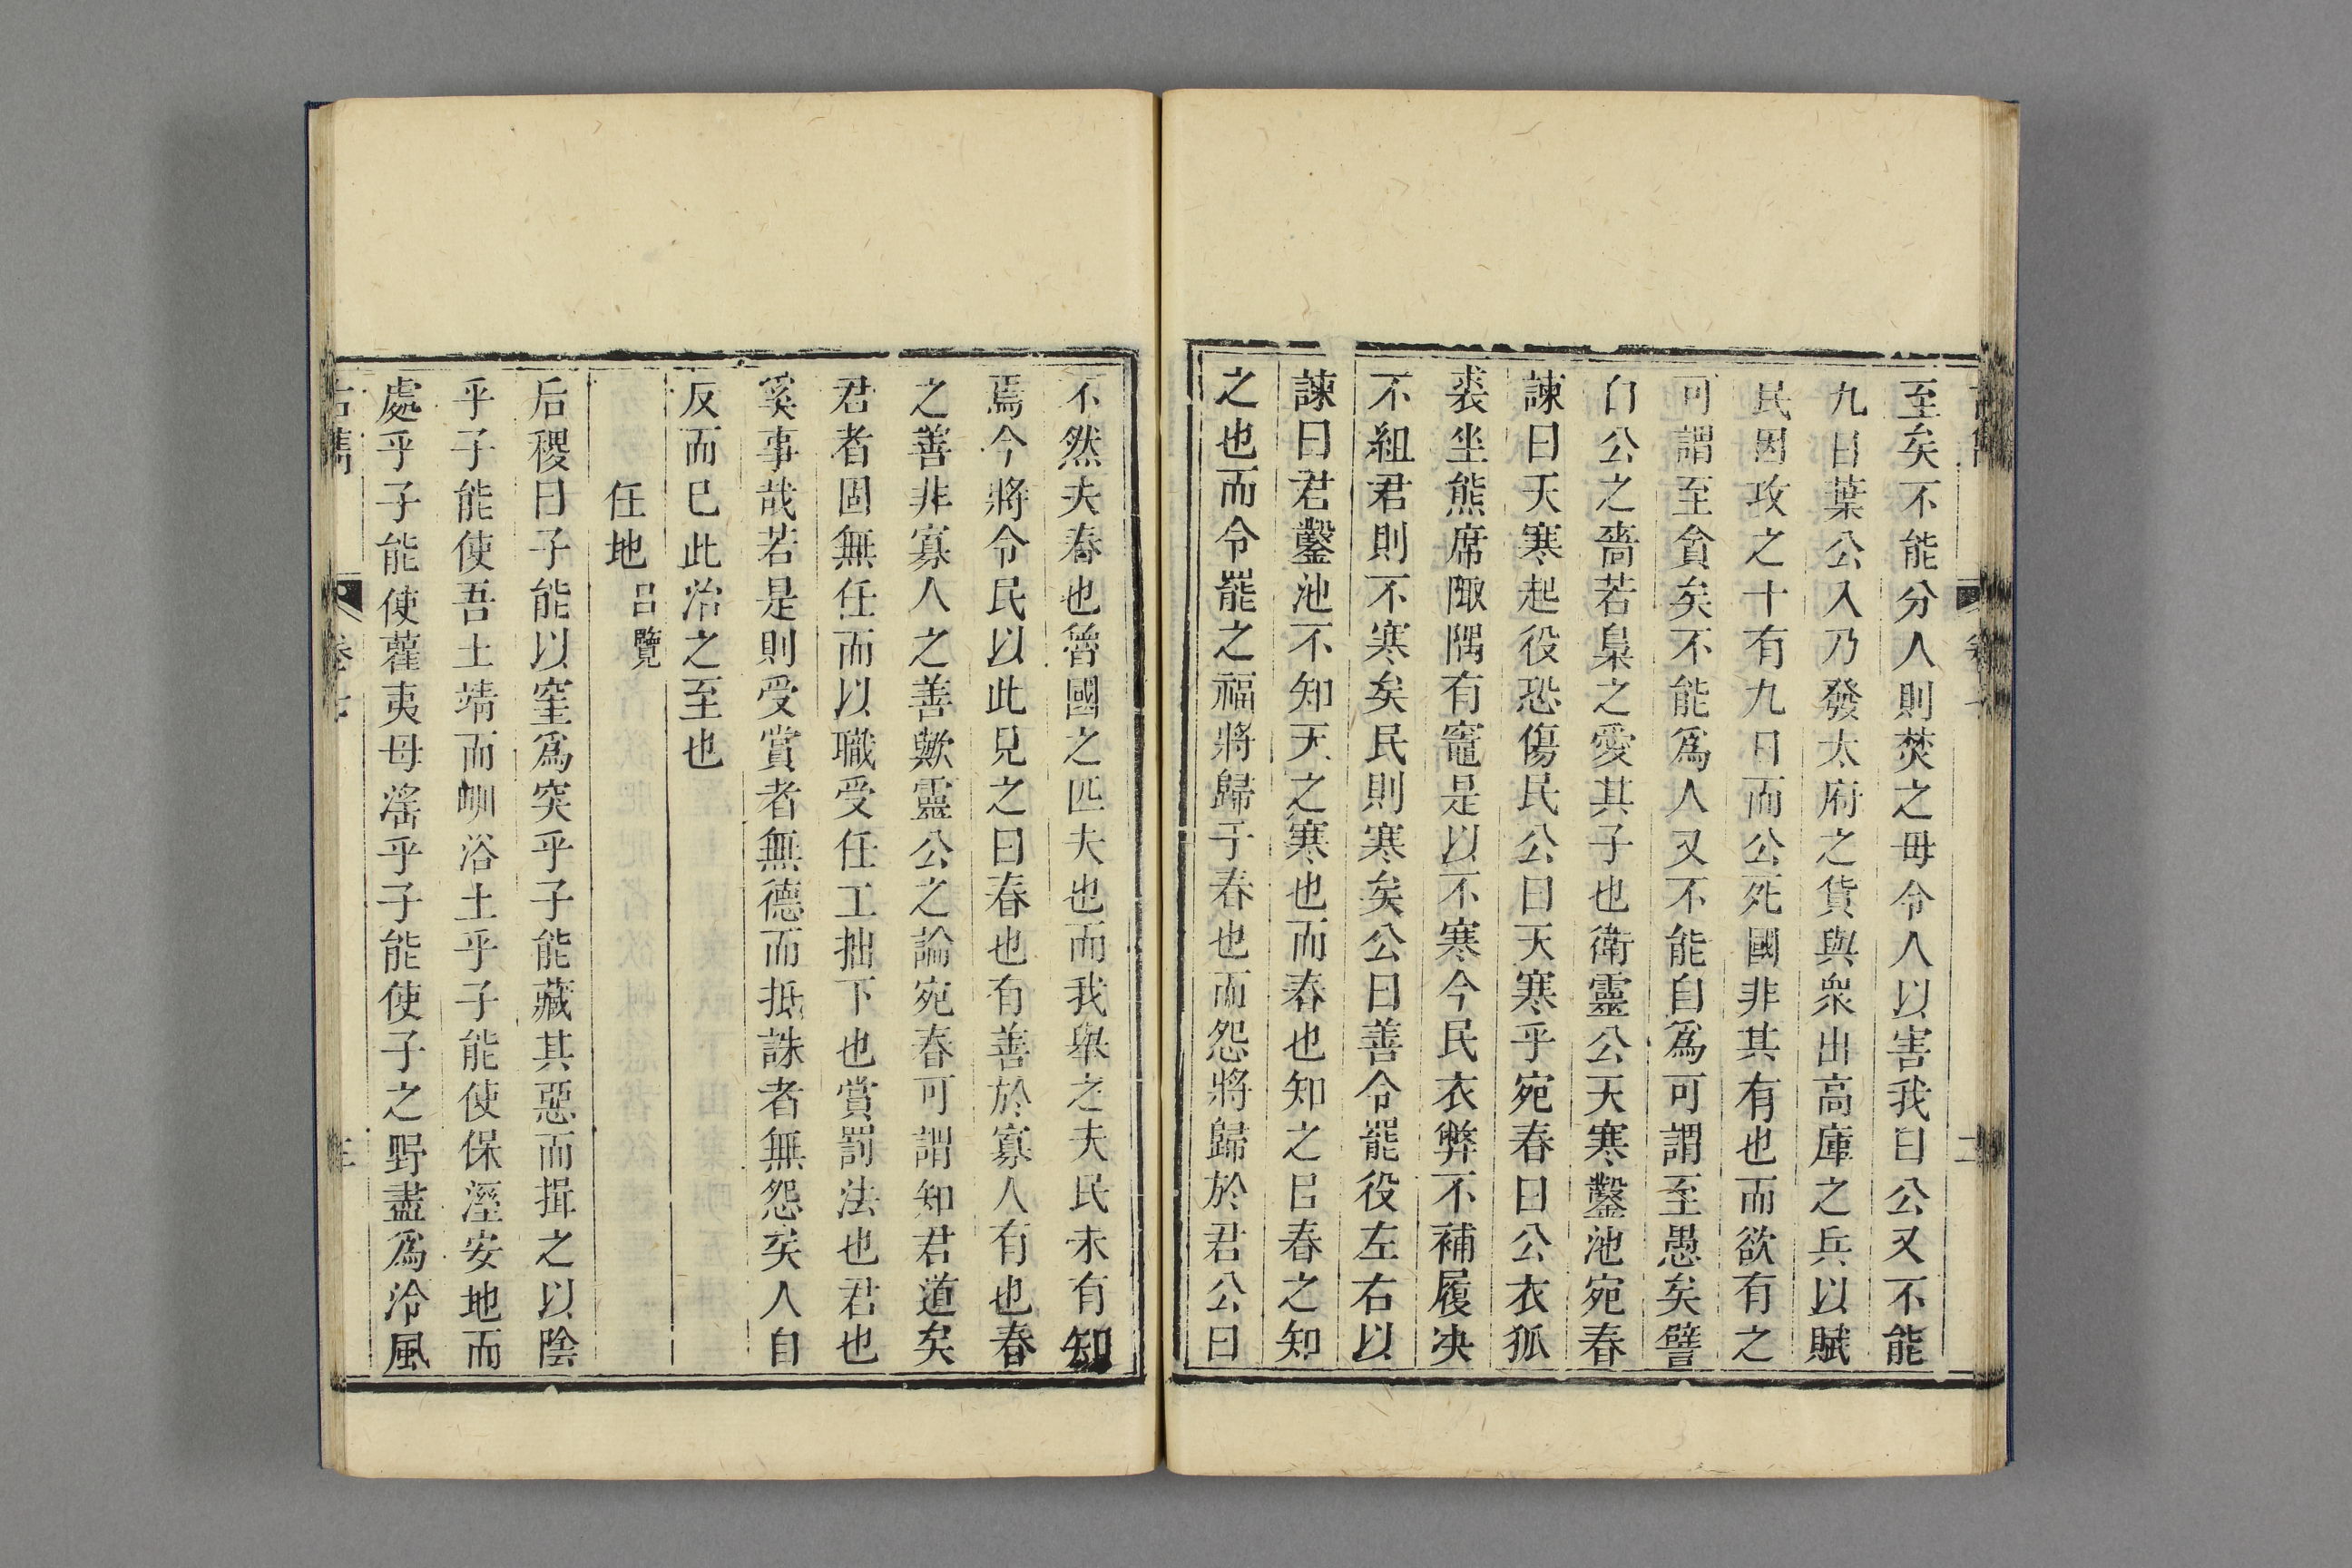 至矣不能分人則焚之毋令人以害我白公又不能
九日葉公入乃發太府之貨與衆出高庫之兵以賦
民因攻之十有九日而公死國非其有也而欲有之
可謂至貪矣不能爲人又不能自爲可謂至愚矣譬
白公之嗇若梟之愛其子也衛靈公天寒鑿池宛春
諫曰天寒起役恐傷民公曰天寒乎宛春曰公衣狐
裘坐熊席陬隅有竈是以不寒今民衣弊不補履決
不組君則不寒矣民則寒矣公曰善令罷役左右以
諫曰君鑿池不知天之寒也而春也知之㠯春之知
之也而令罷之福將歸于春也而怨將歸於君公曰
不然夫春也魯國之匹夫也而我舉之夫民未有知
焉今將令民以此見之曰春也有善於寡人有也春
之善非寡人之善歟靈公之論宛春可謂知君道矣
君者固無任而以職受任工拙下也賞罰法也君也
奚事哉若是則受賞者無德而抵誅者無怨矣人自
反而已此治之至也
任地 呂覽
后稷曰子能以窐爲突乎子能藏其惡而揖之以陰
乎子能使吾土靖而甽浴土乎子能使保溼安地而
處乎子能使雚夷毋滛乎子能使子之野盡爲泠風
古雋 卷七